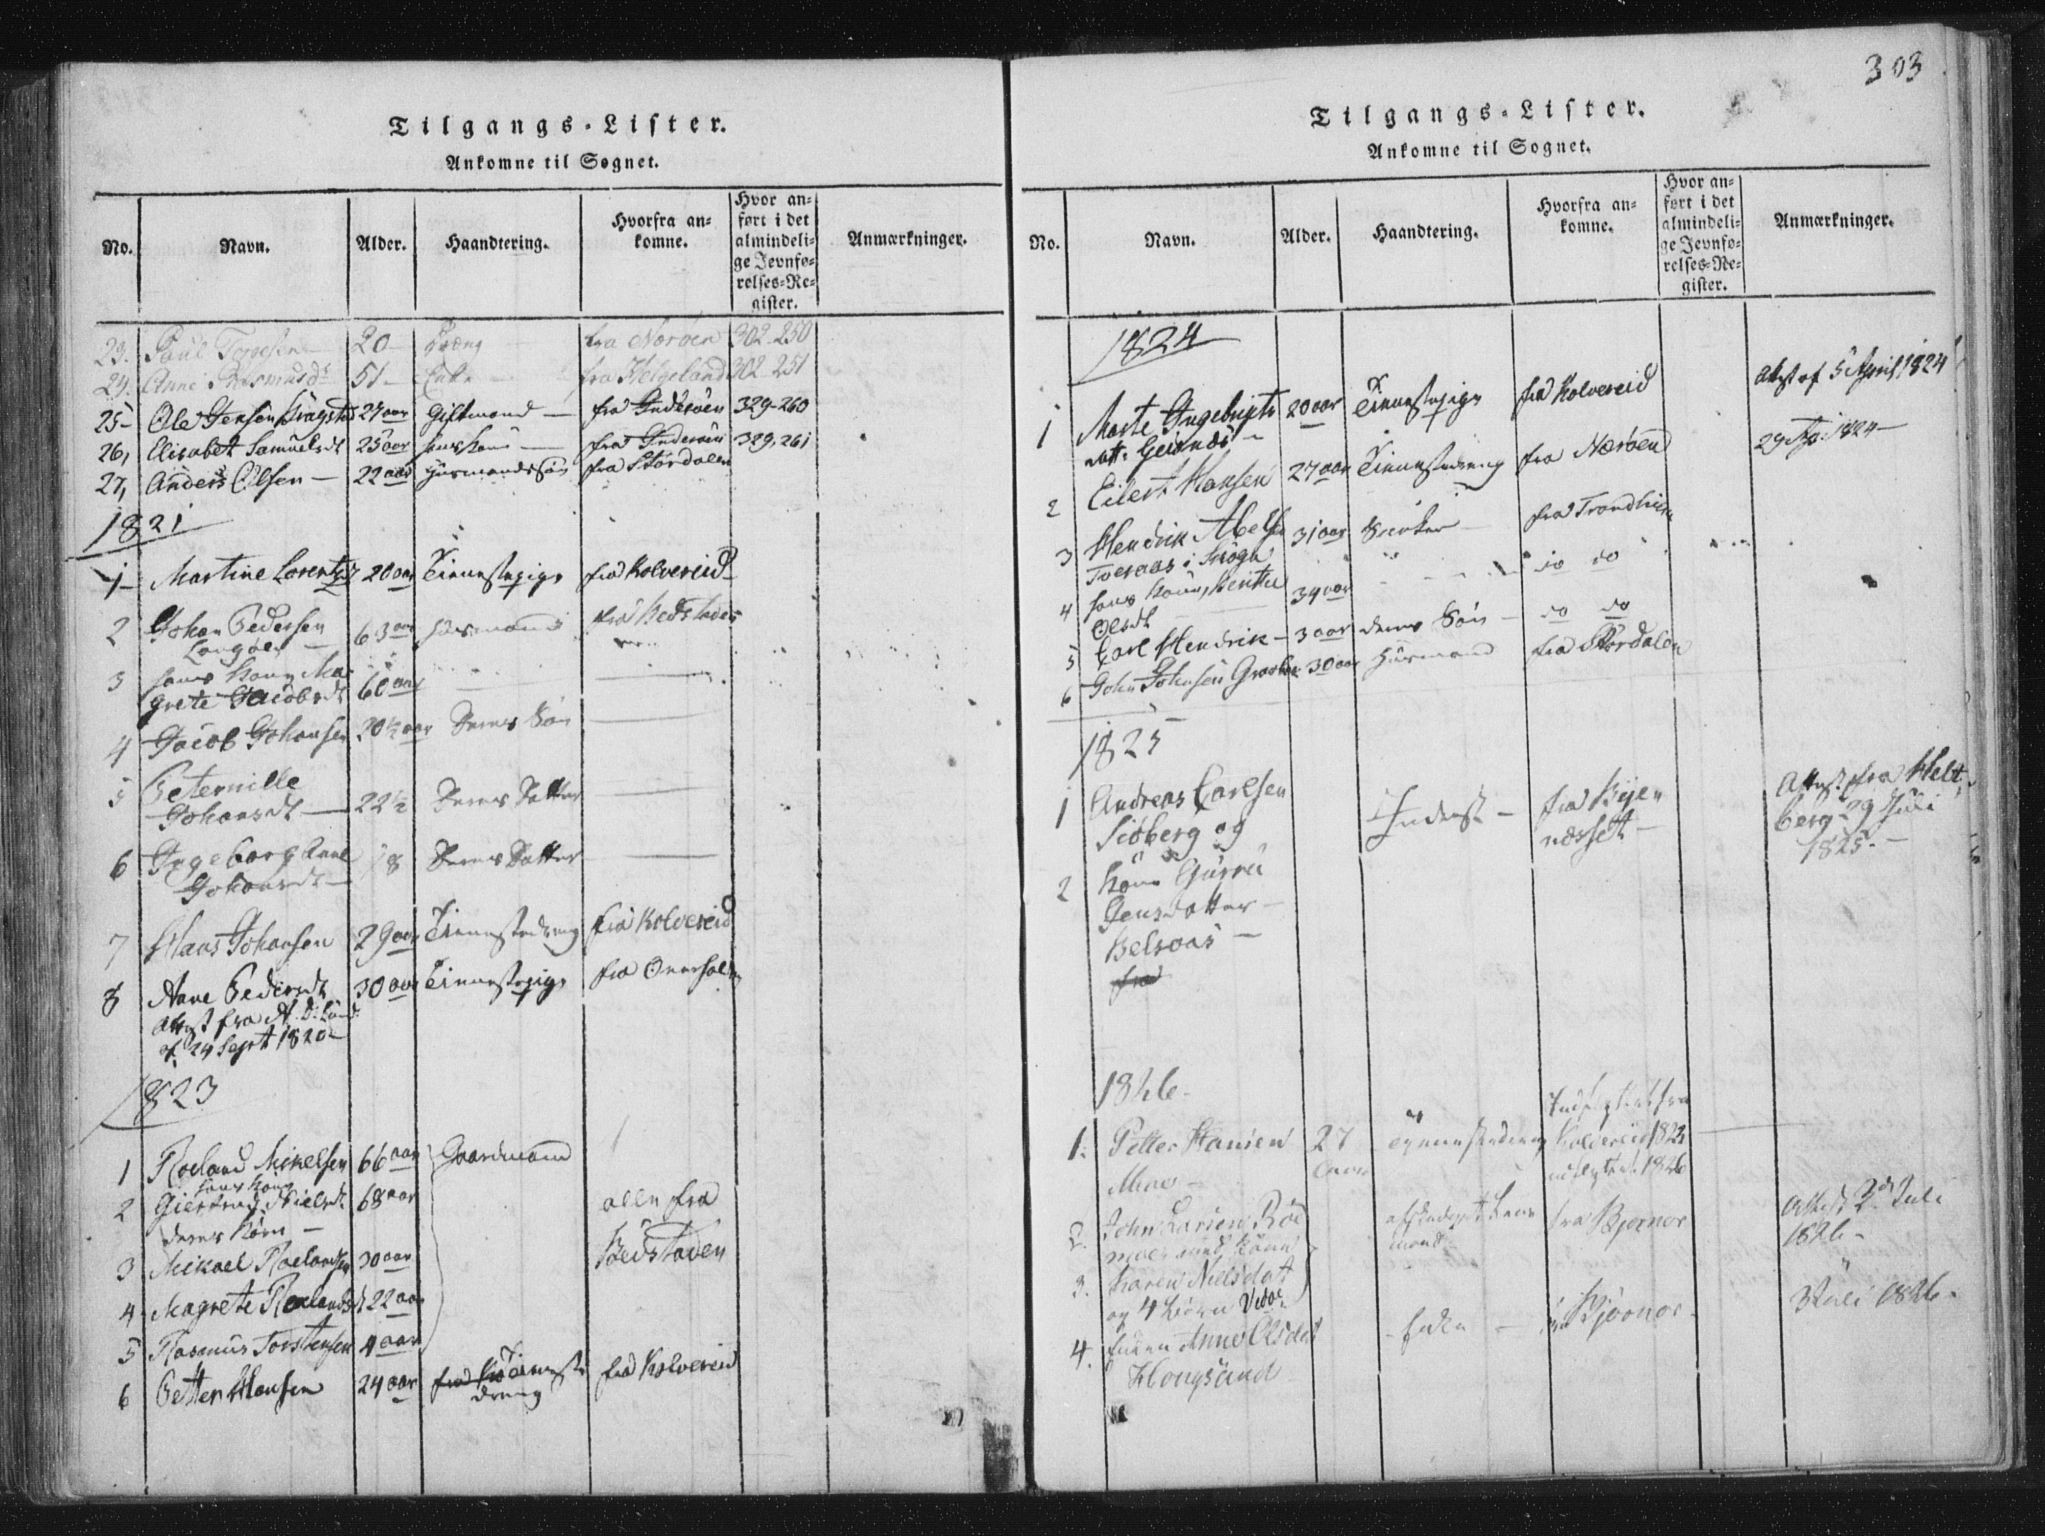 Tilgangs-Lister.
Ankomne til Sognet.
No. Navn. Alder. Haandtering. Hvorfra ankomne. Hvor anført i det almindelige Jevnførelses-Register. Anmærkninger.
23. Paul 20 fra Nærøen 302-250
24. Anne Rasmusdt 51 Enke fra Helgeland 302-251
25 Ole Jensen 27 aar Giftmand fra Inderøen 329-260
26, Elisabet Samuelsdt 25 aar hans Kone fra Inderøen 329, 261
27, Anders Olsen 22 aar Huusmandssøn fra Størdalen
1821
1 Martine Lorentzd 20 aar Tienestepige fra Kolvereid
2 Johan Pedersen 63 aar Huusmand fra Bedstaden
3 hans Kone Ma
grete Jacobsdt 60 aar
4 Jacob Johansen 20½ aar Deres Søn
5 Peternille
Johansdt 22½ Deres Datter
6 Ingeborg Anne
Johansdt 18 Deres Datter
7 Hans Johansen 29 aar Tienestedreng fra Kolvereid
8 Anne Pedersdt 30 aar Tienestepige fra Overhalden
Attest fra
af 24 Sept 1820
1823
1 Roeland Mikelsen 66 aar Gaardmand
2 hans Kone
Giertrud Nielsdt 68 aar alle fra
deres Børn Bedstaden
3 Mikael Roelandsen 30 aar
4 Magrete Roelandsdt 22 aar
5 Rasmus Torstensen 4 aar
6 Petter Hansen 24 aar Tieneste
dreng fra Kolvereid
303
Tilgangs-Lister.
Ankomne til Sognet.
No. Navn. Alder. Haandtering. Hvorfra ankomne. Hvor anført i det almindelige Jevnførelses-Register. Anmærkninger.
1824
1 Marte Ingebrigts 20 aar Tienestepige fra Kolvereid Attest af 5 April 1824
datt.
2 Eilert Hansen 27 aar Tienestedreng fra Nærøen 29 1824
3 Hendrik Abelsen 31 aar fra Trondhiem
i Skogn
4 hans Kone, Beritha 34 aar do do
Olsdt
5 Carl Hendrik 3 aar deres Søn do do
6 John Johnsen 30 aar Huusmand fra Størdalen
1825
1 Andreas Carlsen Inderst fra Byen Attest fra Melt
Siøberg og næsset berg 29 Juli
2 Kone Guru 1825.
Jensdatter
Belsaas
fra
1826
1. Petter Hansen 27 Tienestedreng Indflyttet fra
Moe aar Kolvereid 1823
udflyttet 1826
2. John Larsen Røe fra Bjørnør Attest 2 Juli
moe med Kone 1826
3. Karen Nielsdatt
og 4 Børn
4. Enken Anne Olsdat Enke fra Bjørnør 3 Juli 1826